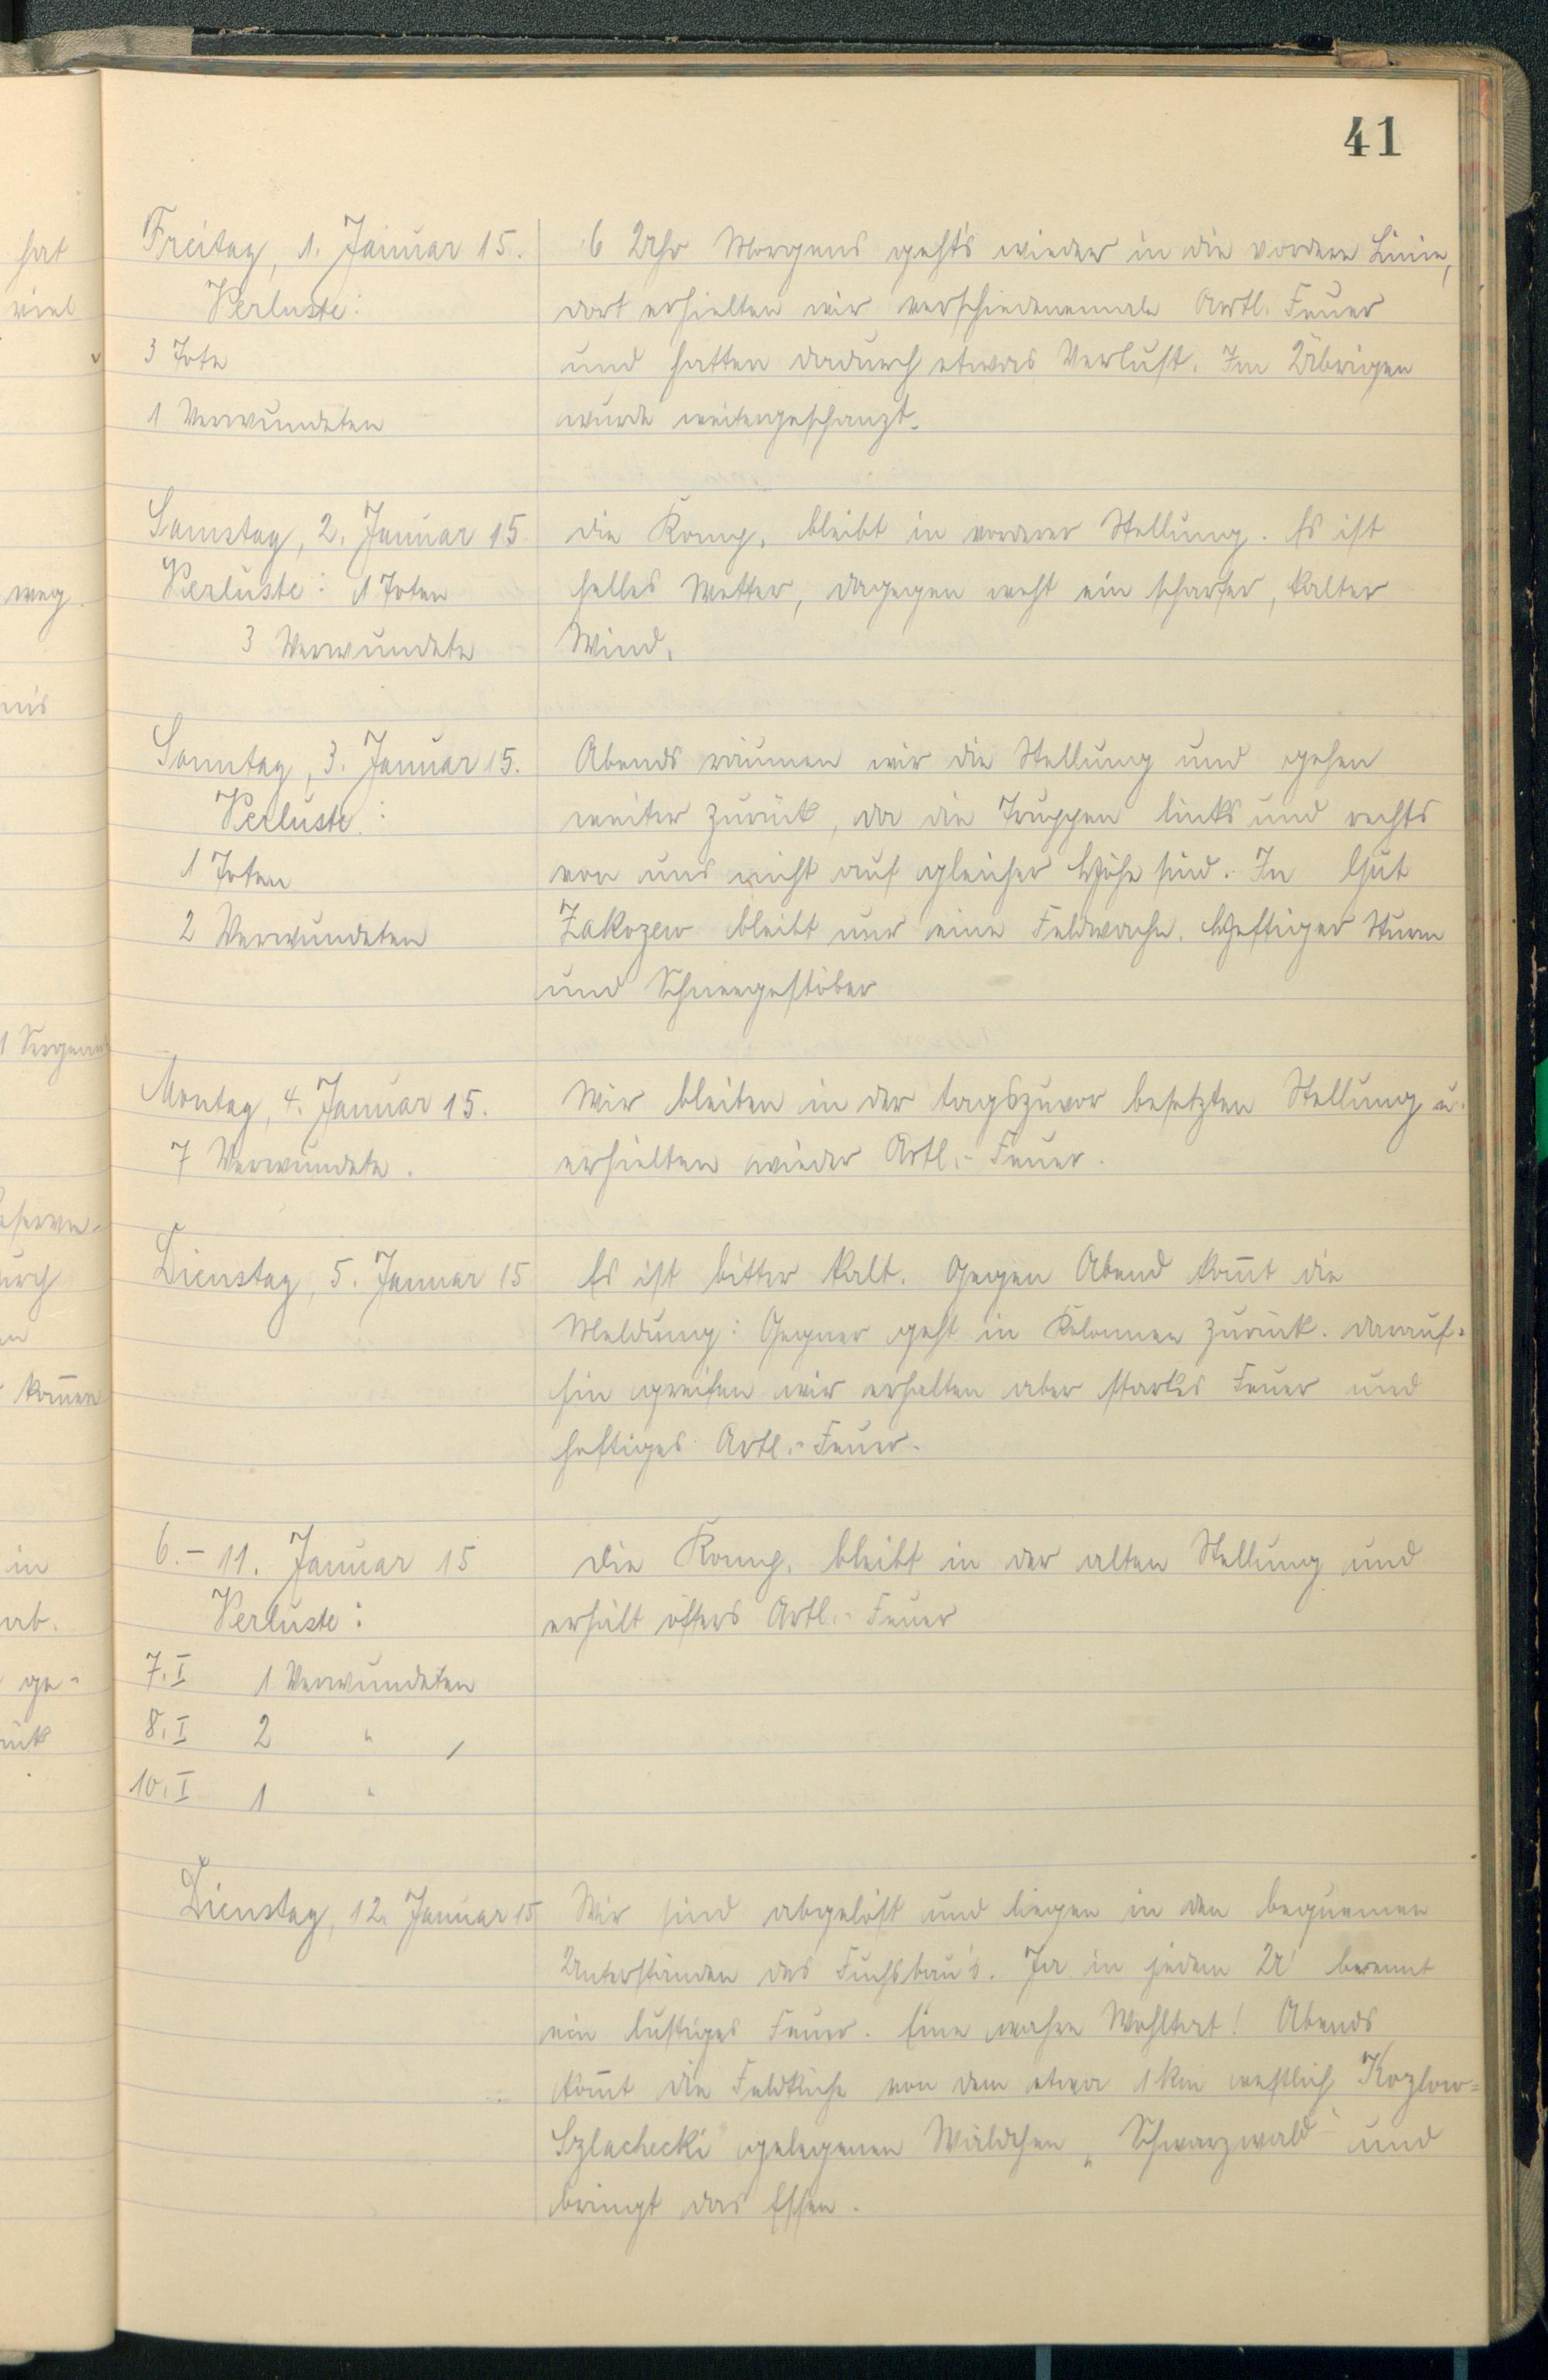 41
Freitag, 1. Januar 15.
Verluste:
3 Tote
1 Verwundeten
6 Uhr Morgens geht's wieder in die vordere Linie,
dort erhielten wir verschiedenemale Artl. Feuer
und hatten dadurch etwas Verlust. Im Übrigen
wurde weitergeschanzt.
Samstag, 2. Januar 15
Verluste: 1 Toten
3 Verwundete
Die Komp. bleibt in vorderer Stellung. Es ist
helles Wetter, dagegen weht ein scharfer, kalter
Wind.
Sonntag, 3. Januar 15.
Verluste:
1 Toten
2 Verwundeten
Abends räumen wir die Stellung und gehen
weiter zurück, da die Truppen links und rechts
von uns nicht auf gleicher Höhe sind. In Gut
Zakozew bleibt nur eine Feldwache. Heftiger Sturm
und Schneegestöber
Montag, 4. Januar 15.
7 Verwundete.
Wir bleiben in der tagszuvor besetzten Stellung u.
erhielten wieder Artl.-Feuer.
Dienstag, 5. Januar 15
Es ist bitter kalt. Gegen Abend kom̄t die
Meldung: Gegner geht in Kolonnen zurück. Darauf=
hin greifen wir erhalten aber starkes Feuer und
heftiges Artl.-Feuer.
6.- 11. Januar 15
Verluste:
7.I 1 Verwundeten
8.I 2 "
10.I 1 "
Die Komp. bleibt in der alten Stellung und
erhält öfters Artl.-Feuer
Dienstag, 12. Januar 15
Wir sind abgelöst und liegen in den bequemen
Unterständen des Fuchsbau's. Ja in jedem U' brennt
ein lustiges Feuer. Eine wahre Wohltat! Abends
kom̄t die Feldküche von dem etwa 1 km westlich Kozlow=
Szlachecki gelegenen Wäldchen „Schwarzwald" und
bringt das Essen.